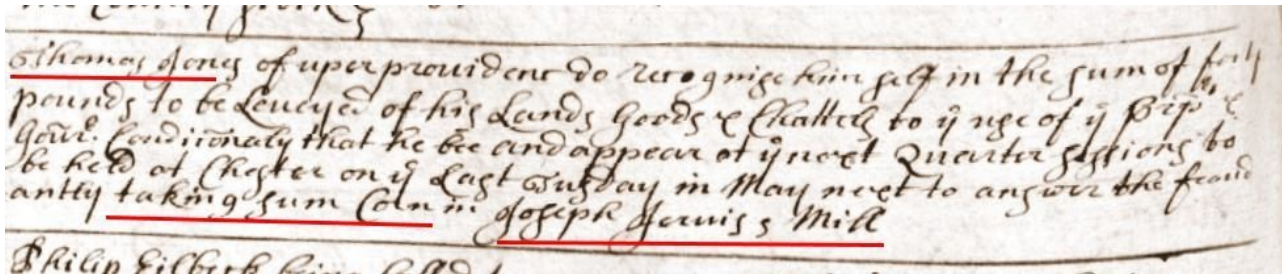 Thomas Jones of uper providenc do Recognise him self in the sum of forty
pounds to be Leveyed of his Lands Goods & Chattels to ye use of ye Prop &
Govr. Condicionaly that he bee and appear at ye next Quarter sessions to
be held at Chester on ye Last Tusday in May next to answer the fraud
antly taking sum Corn in Joseph Jervis s Mill
Philip